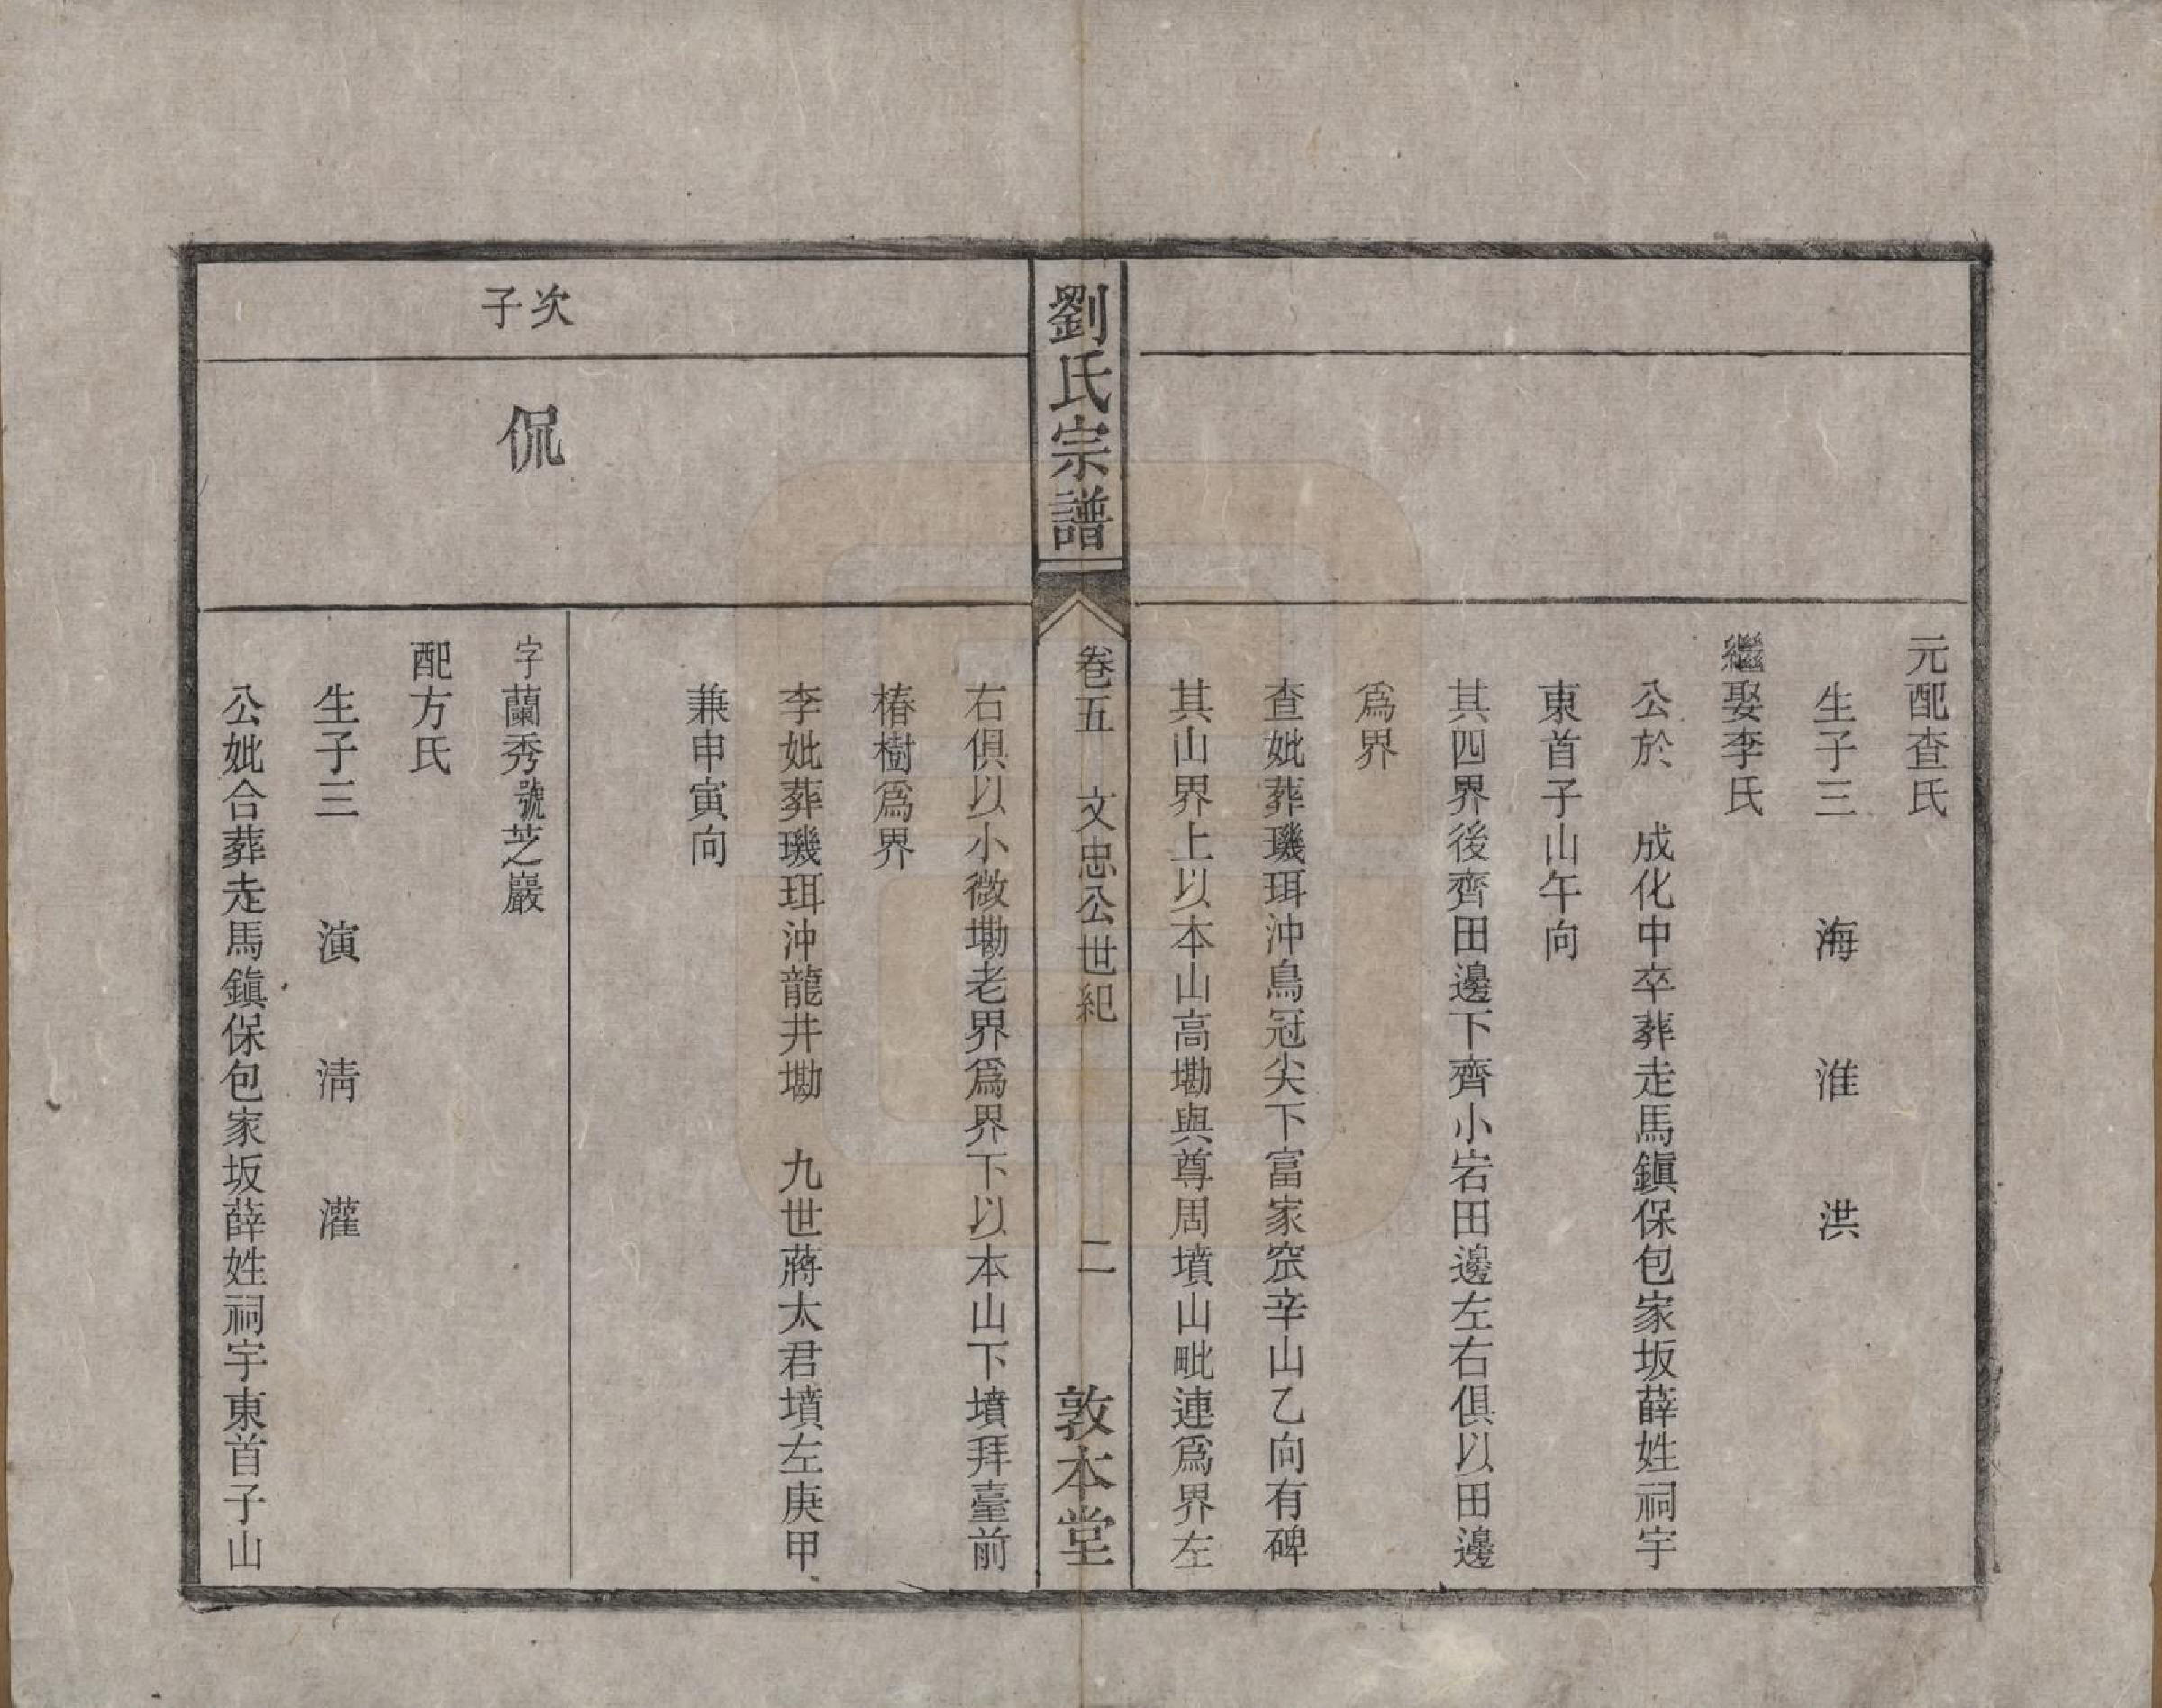 元配查氏
生子三　海　淮　洪
繼娶李氏
公於　成化中卒葬走馬鎭保包家坂薛姓祠宇
東首子山午向
其四界後齊田邊下齊小岩田邊左右俱以田邊
爲界
查妣葬璣珥沖鳥冠尖下富家窊辛山乙向有碑
其山界上以本山高墈與尊周墳山毗連爲界左
劉氏宗譜
卷五　文忠公世紀　二
敦本堂
右俱以小微墈老界爲界下以本山下墳拜臺前
椿樹爲界
李妣葬璣珥沖龍井墈　九世蔣太君墳左庚甲
兼申寅向
次子
侃
字蘭秀號芝巖
配方氏
生子三　演　清　灌
公妣合葬走馬鎭保包家坂薛姓祠宇東首子山